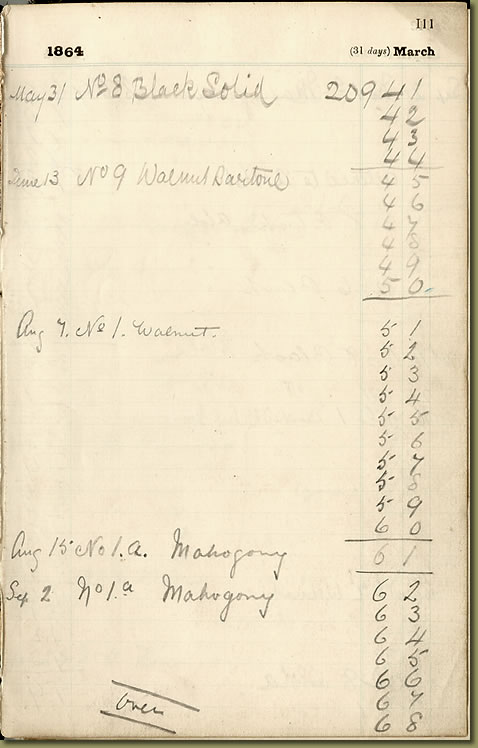 111
1864 (31 days) March
May 31 No 8 Black Solid 20941
42
43
44
June 13 No 9 Walnut Baritone 45
46
47
48
49
50
Aug 7. No 1. Walnut. 51
52
53
54
55
56
57
58
59
60
Aug 15 No 1. a. Mahogony 61
Sep 2 No 1.a Mahogony 62
63
64
65
66
67
68
over